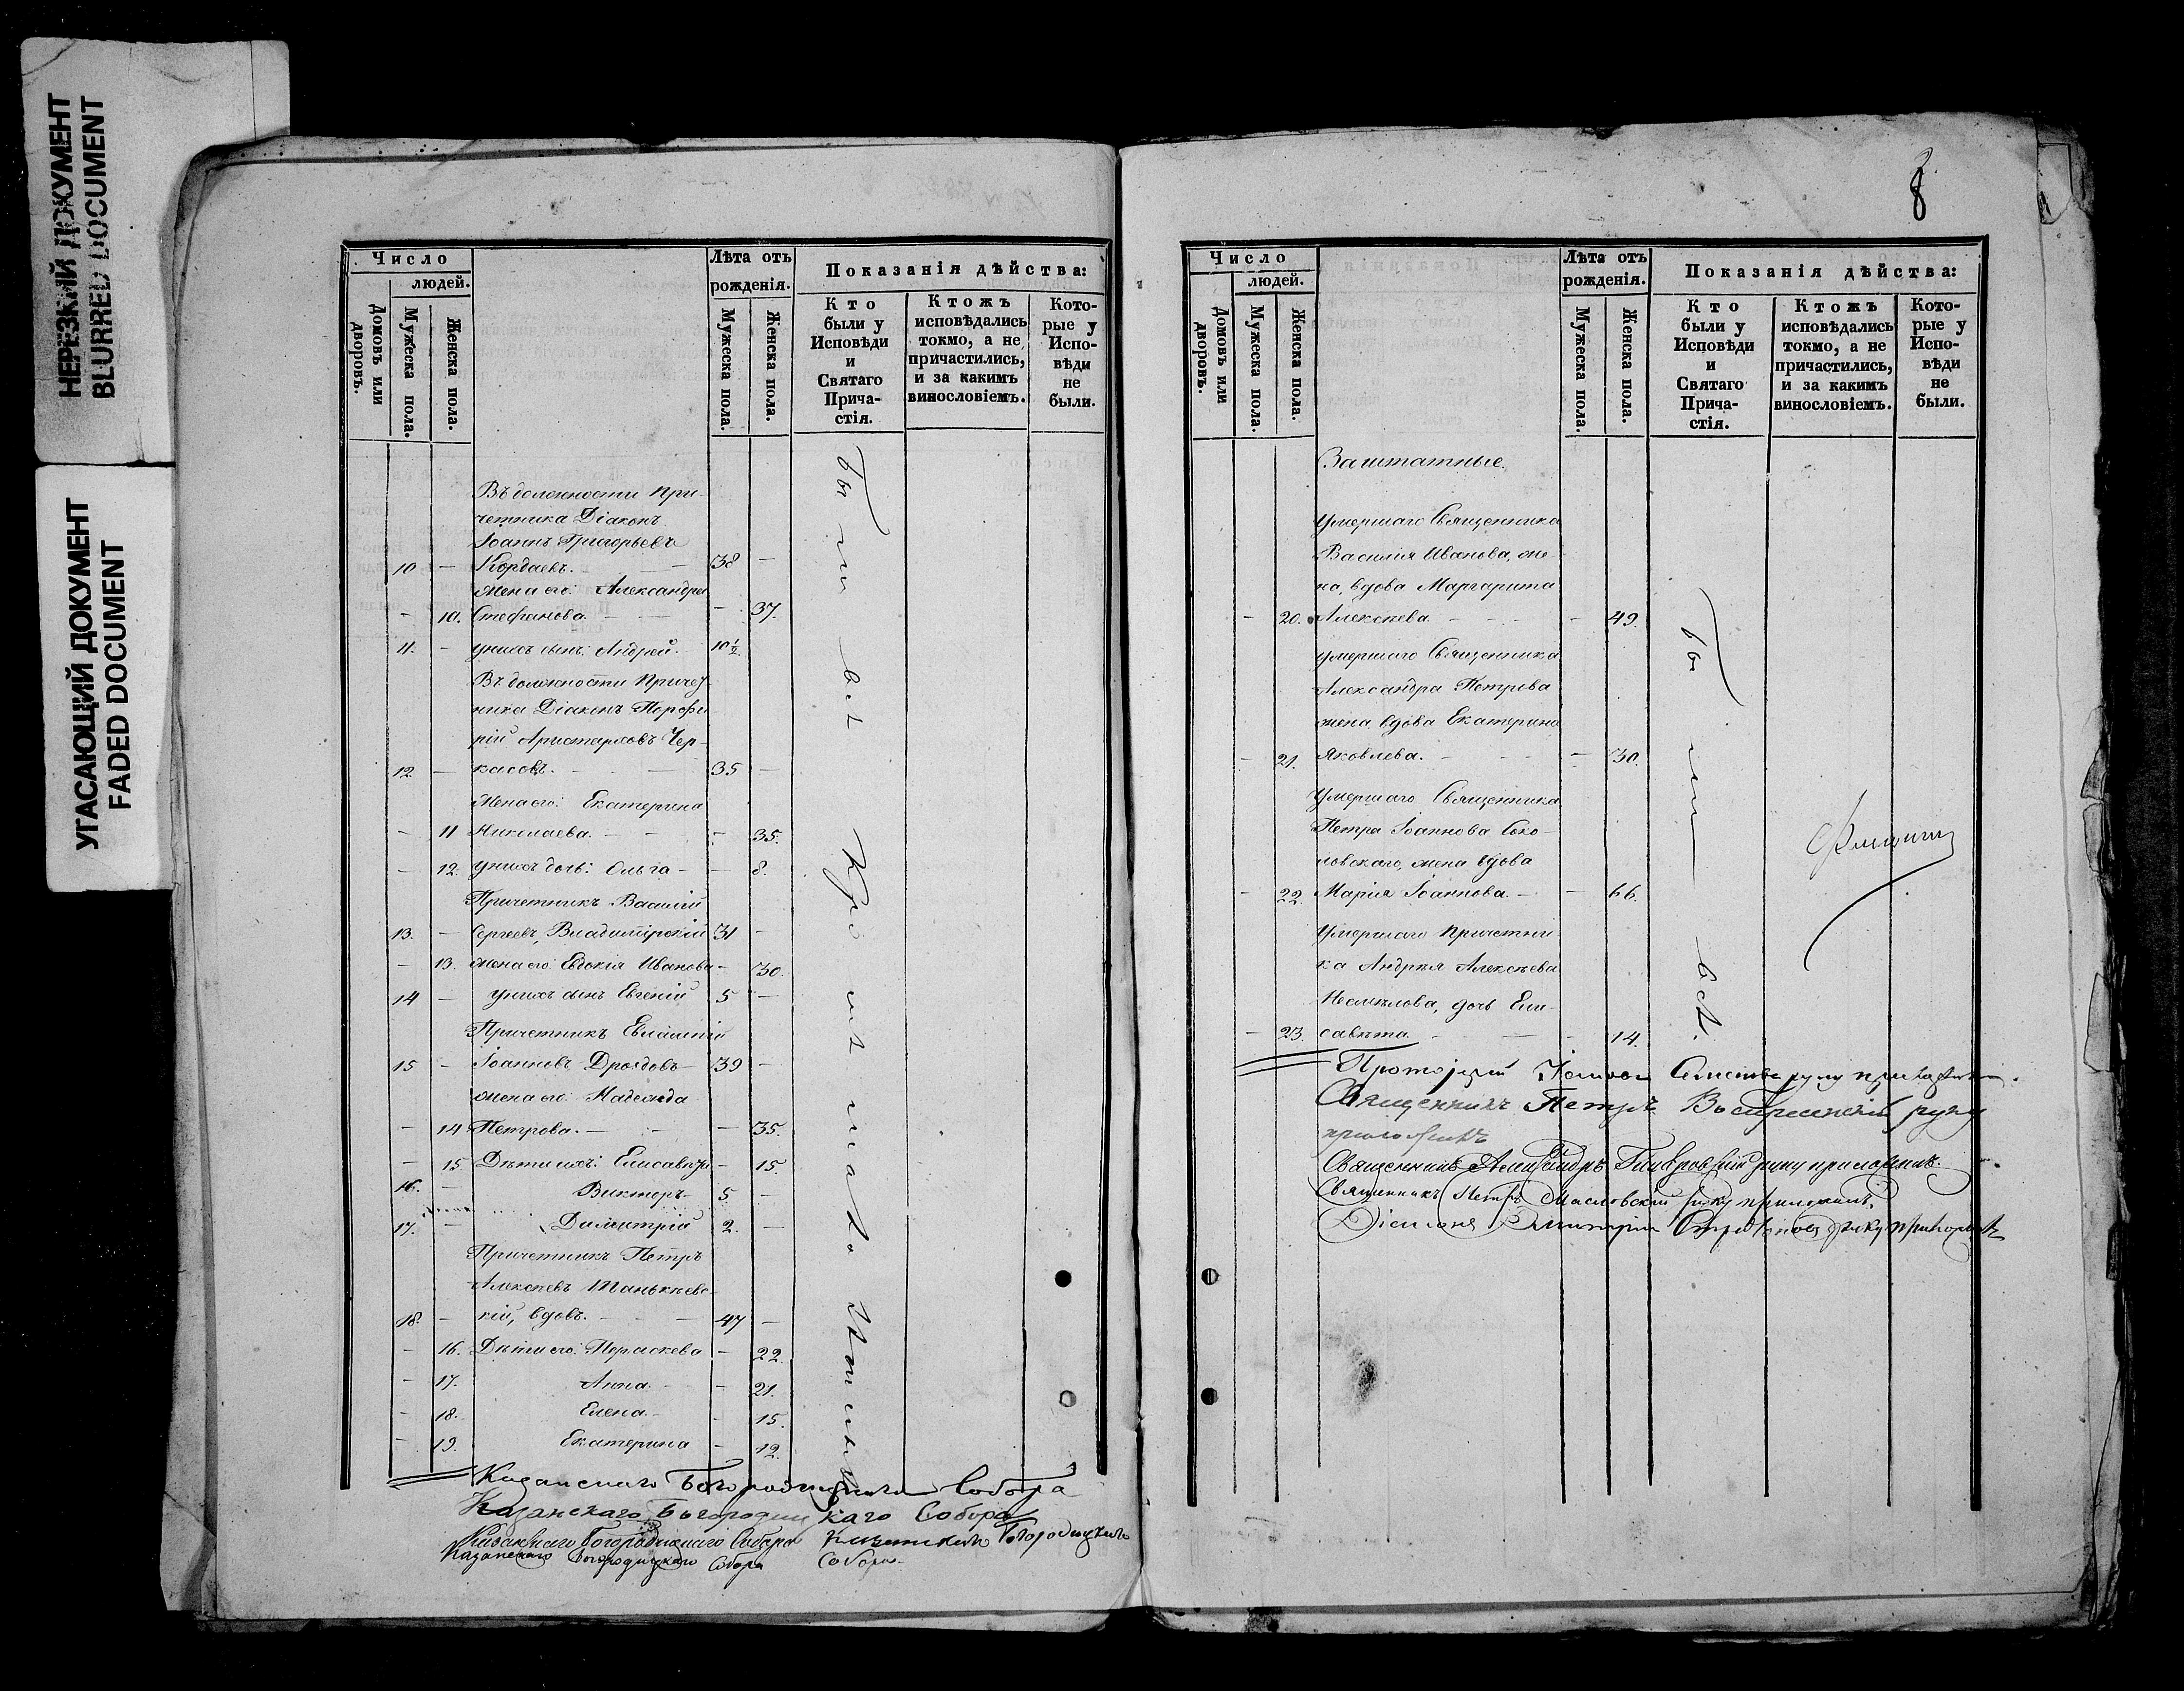 НЕРЕЗКИЙ ДОКУМЕНТ
BLURRED DOCUMENT
УГАСАЮЩИЙ ДОКУМЕНТ
FADED DOCUMENT
Число
людей.
Домовъ или дворовъ.
Мужеска пола.
Женска пола.
Лѣта отъ рожденія.
Мужеска пола.
Женска пола.
Показанія дѣйства:
Кто были у Исповѣди и Святаго Прича-стія.
Ктожъ исповѣдались токмо, а не причастились, и за какимъ винословіемъ.
Кото-рые у Испо-вѣди не были.
Въ должности При-
четника Діаконъ
Іоаннъ Григорьевъ
10 — Кордаевъ. — 38 —
Жена его: Александра
— 10. Стефанова. — — 37.
11. — у нихъ сынъ: Андрей. 10 1/2
Въ должности Причет-
ника Діаконъ Порфи-
рій Аристарховъ Чер-
12. — касовъ. — 35 —
Жена его: Екатерина
— 11 Николаева. — — 35.
— 12. у нихъ дочь: Ольга — — 8.
Причетникъ Василій
13. — Сергеевъ, Владимірскій 31 —
— 13. жена его: Евдокія Иванова — 30.
14 — у нихъ сынъ Евгеній 5 —
Причетникъ Евлампій
15 — Іоанновъ Дроздовъ — 39 —
жена его: Надежда
— 14 Петрова. — — 35.
— 15 Дѣти ихъ: Елисавета — 15.
16. — Викторъ — 5. —
17. — Димитрій 2. —
Причетникъ Петръ
Алексѣевъ Танькѣевс-
18. — кій, вдовъ. — 47 —
— 16. Дѣти его: Параскева — 22.
— 17. Анна. — — 21.
— 18. Елена. — — 15.
— 19. Екатерина — 12.
Были всѣ
Казанскаго Богородицкаго Собора
Казанскаго Богородицкаго Собора
Казанскаго Богородицкаго Собора Казанскаго Богородицкаго
Казанскаго Богородицкаго Собора Собора.
8
Число
людей.
Домовъ или дворовъ.
Мужеска пола.
Женска пола.
Лѣта отъ рожденія.
Мужеска пола.
Женска пола.
Показанія дѣйства:
Кто были у Исповѣди и Святаго Прича-стія.
Ктожъ исповѣдались токмо, а не причастились, и за какимъ винословіемъ.
Кото-рые у Испо-вѣди не были.
Заштатные.
Умершаго Священника
Василія Иванова, же-
на, вдова Маргарита
— 20. Алексѣева — — 49.
Умершаго Священника
Александра Петрова
жена, вдова Екатерина
— 21. Яковлева. — — 30.
Умершаго Священника
Петра Іоаннова Соко-
ловскаго, жена вдова
— 22. Марія Іоаннова. — — 66.
Умершаго причетни-
ка Андрея Алексѣева
Несмѣлова, дочь Ели-
— 23. савѣта. — — 14.
Были всѣ.
Протоіерей руку приложилъ.
Священникъ Петръ Воскресенскій руку
приложилъ
Священникъ Александръ руку приложилъ.
Священникъ Петръ Масловскій руку приложилъ.
Діаконъ Димитрій руку приложилъ